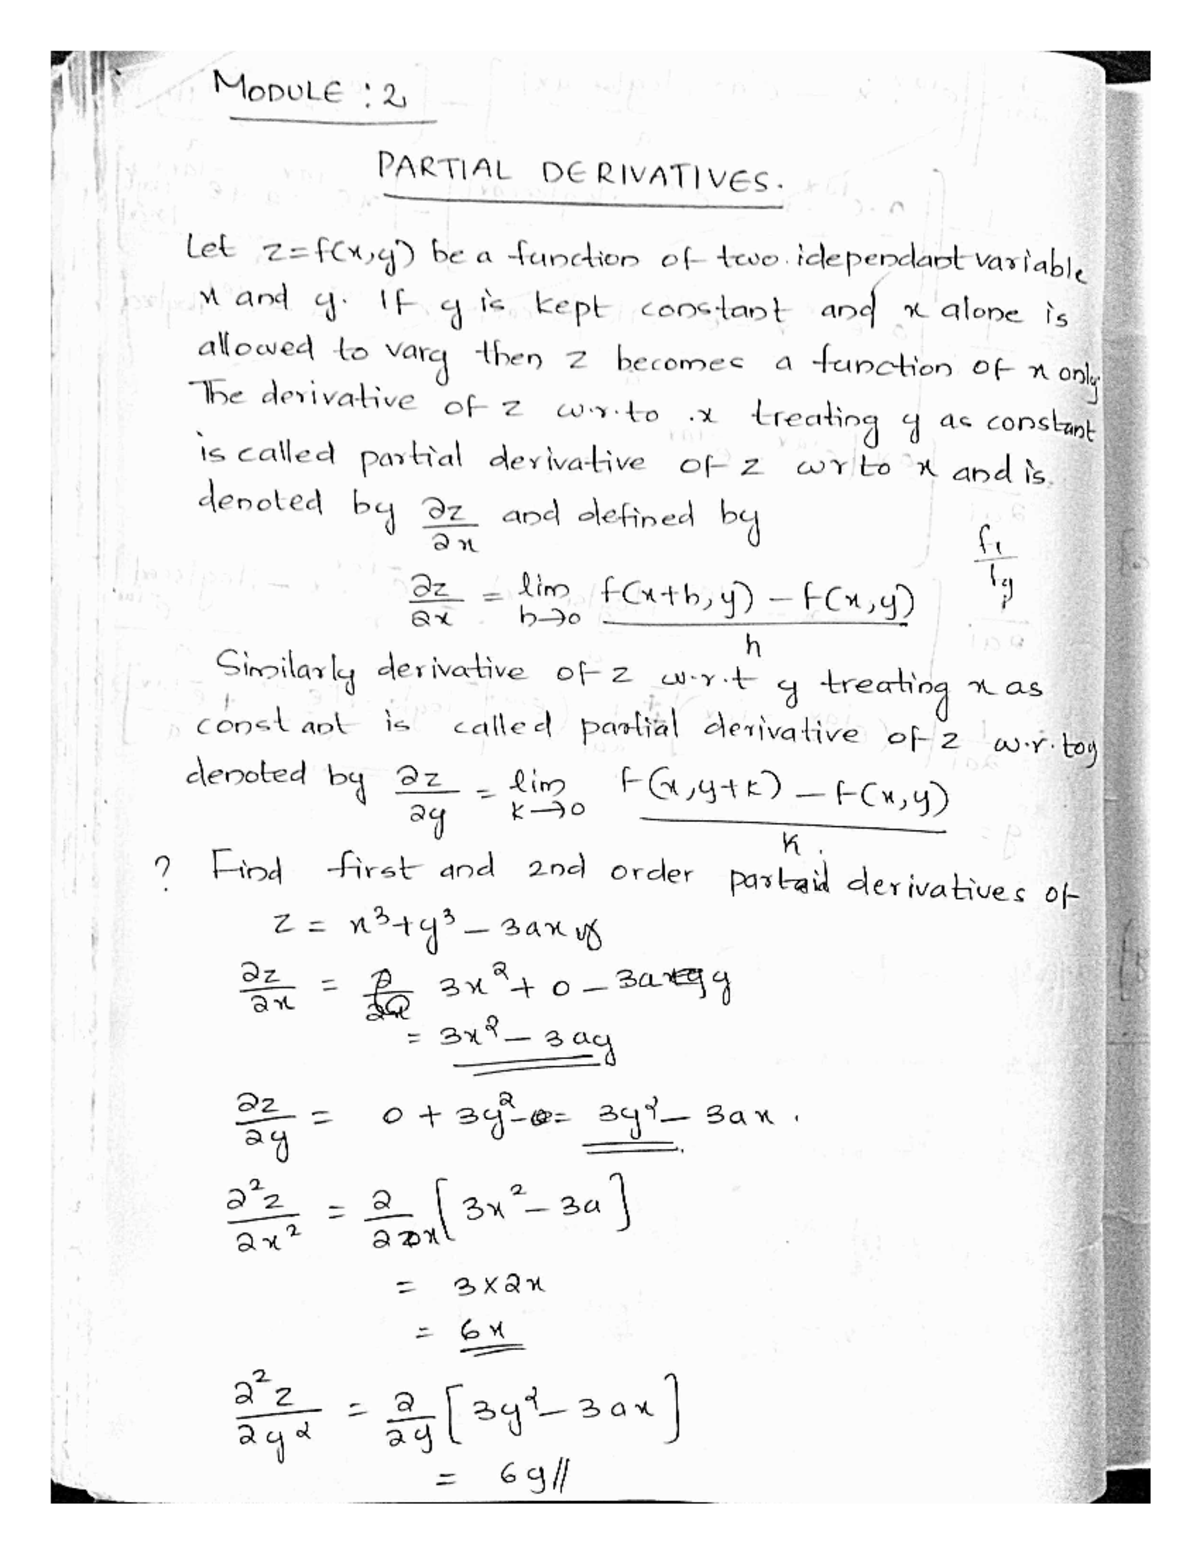 MODULE : 2
PARTIAL DERIVATIVES.
Let z=f(x,y) be a function of two idependant variable
x and y. If y is kept constant and x alone is
allowed to vary then z becomes a function of x only
The derivative of z w.r.to x treating y as constant
is called partial derivative of z wrto x and is.
denoted by ∂z/∂x and defined by
∂z/∂x = lim h→0 f(x+h,y) − f(x,y) / h
Similarly derivative of z w.r.t y treating x as
constant is called partial derivative of z w.r.to y
denoted by ∂z/∂y = lim k→0 f(x,y+k) − f(x,y) / k.
? Find first and 2nd order partaid derivatives of
z = x³+y³ − 3axy
∂z/∂x = 3x² + 0 − 3a y
= 3x² − 3ay
∂z/∂y = 0 + 3y² − = 3y² − 3ax .
∂²z/∂x² = ∂/∂x [3x² − 3a]
= 3×2x
= 6x
∂²z/∂y² = ∂/∂y [3y² − 3ax]
= 6y//